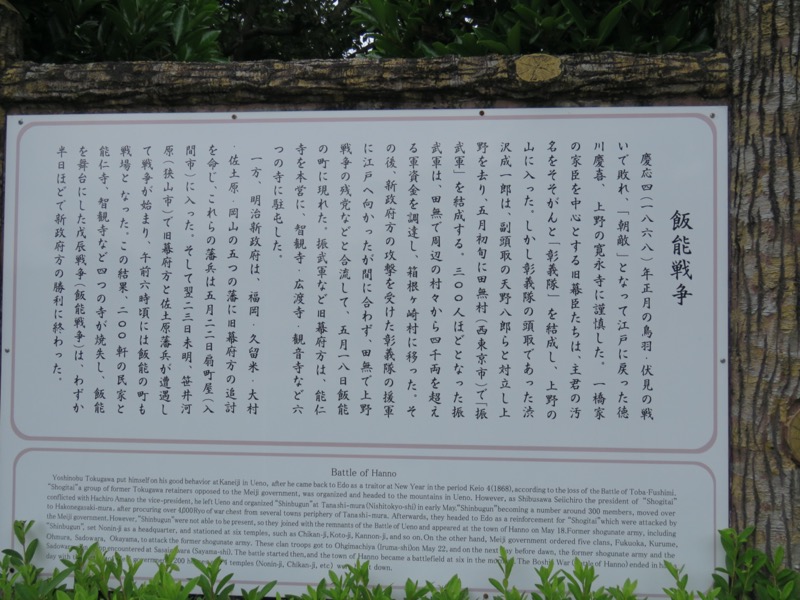 飯能戦争
慶応四(一八六八)年正月の鳥羽・伏見の戦
いで敗れ、「朝敵」となって江戸に戻った徳
川慶喜、上野の寛永寺に謹慎した。一橋家
の家臣を中心とする旧幕臣たちは、主君の汚
名をそそがんと「彰義隊」を結成し、上野の
山に入った。しかし彰義隊の頭取であった渋
沢成一郎は、副頭取の天野八郎らと対立し上
野を去り、五月初旬に田無村(西東京市)で「振
武軍」を結成する。三〇〇人ほどとなった振
武軍は、田無で周辺の村々から四千両を超え
る軍資金を調達し、箱根ヶ崎村に移った。そ
の後、新政府方の攻撃を受けた彰義隊の援軍
に江戸へ向かったが間に合わず、田無で上野
戦争の残党などと合流して、五月一八日飯能
の町に現れた。振武軍など旧幕府方は、能仁
寺を本営に、智観寺・広渡寺・観音寺など六
つの寺に駐屯した。
一方、明治新政府は、福岡・久留米・大村
・佐土原・岡山の五つの藩に旧幕府方の追討
を命じ、これらの藩兵は五月二二日扇町屋(入
間市)に入った。そして翌二三日未明、笹井河
原(狭山市)で旧幕府方と佐土原藩兵が遭遇し
て戦争が始まり、午前六時頃には飯能の町も
戦場となった。この結果、二〇〇軒の民家と
能仁寺、智観寺など四つの寺が焼失し、飯能
を舞台にした戊辰戦争(飯能戦争)は、わずか
半日ほどで新政府方の勝利に終わった。
Battle of Hanno
Yoshinobu Tokugawa put himself on his good behavior at Kaneiji in Ueno, after he came back to Edo as a traitor at New Year in the period Keio 4(1868), according to the loss of the Battle of Toba-Fushimi.
"Shogitai" a group of former Tokugawa retainers opposed to the Meiji government, was organized and headed to the mountains in Ueno. However, as Shibusawa Seiichiro the president of "Shogitai"
conflicted with Hachiro Amano the vice-president, he left Ueno and organized "Shinbugun" at Tanashi-mura (Nishitokyo-shi) in early May. "Shinbugun" becoming a number around 300 members, moved over
to Hakonegasaki-mura, after procuring over 4,000Ryo of war chest from several towns periphery of Tanashi-mura. Afterwards, they headed to Edo as a reinforcement for "Shogitai" which were attacked by
the Meiji government. However, "Shinbugun" were not able to be present, so they joined with the remnants of the Battle of Ueno and appeared at the town of Hanno on May 18. Former shogunate army, including
"Shinbugun", set Nonin-ji as a headquarter, and stationed at six temples, such as Chikan-ji, Koto-ji, Kannon-ji, and so on. On the other hand, Meiji government ordered five clans, Fukuoka, Kurume,
Ohmura, Sadowara, Okayama, to attack the former shogunate army. These clan troops got to Ohgimachiya (Iruma-shi) on May 22, and on the next day before dawn, the former shogunate army and the
Sadowara encountered at Sasai (Sayama-shi). The battle started then, and the town of Hanno became a battlefield at six in the The Boshin War of Hanno) ended in
day with 200 temples (Nonin-ji, Chikan-ji, etc) down.